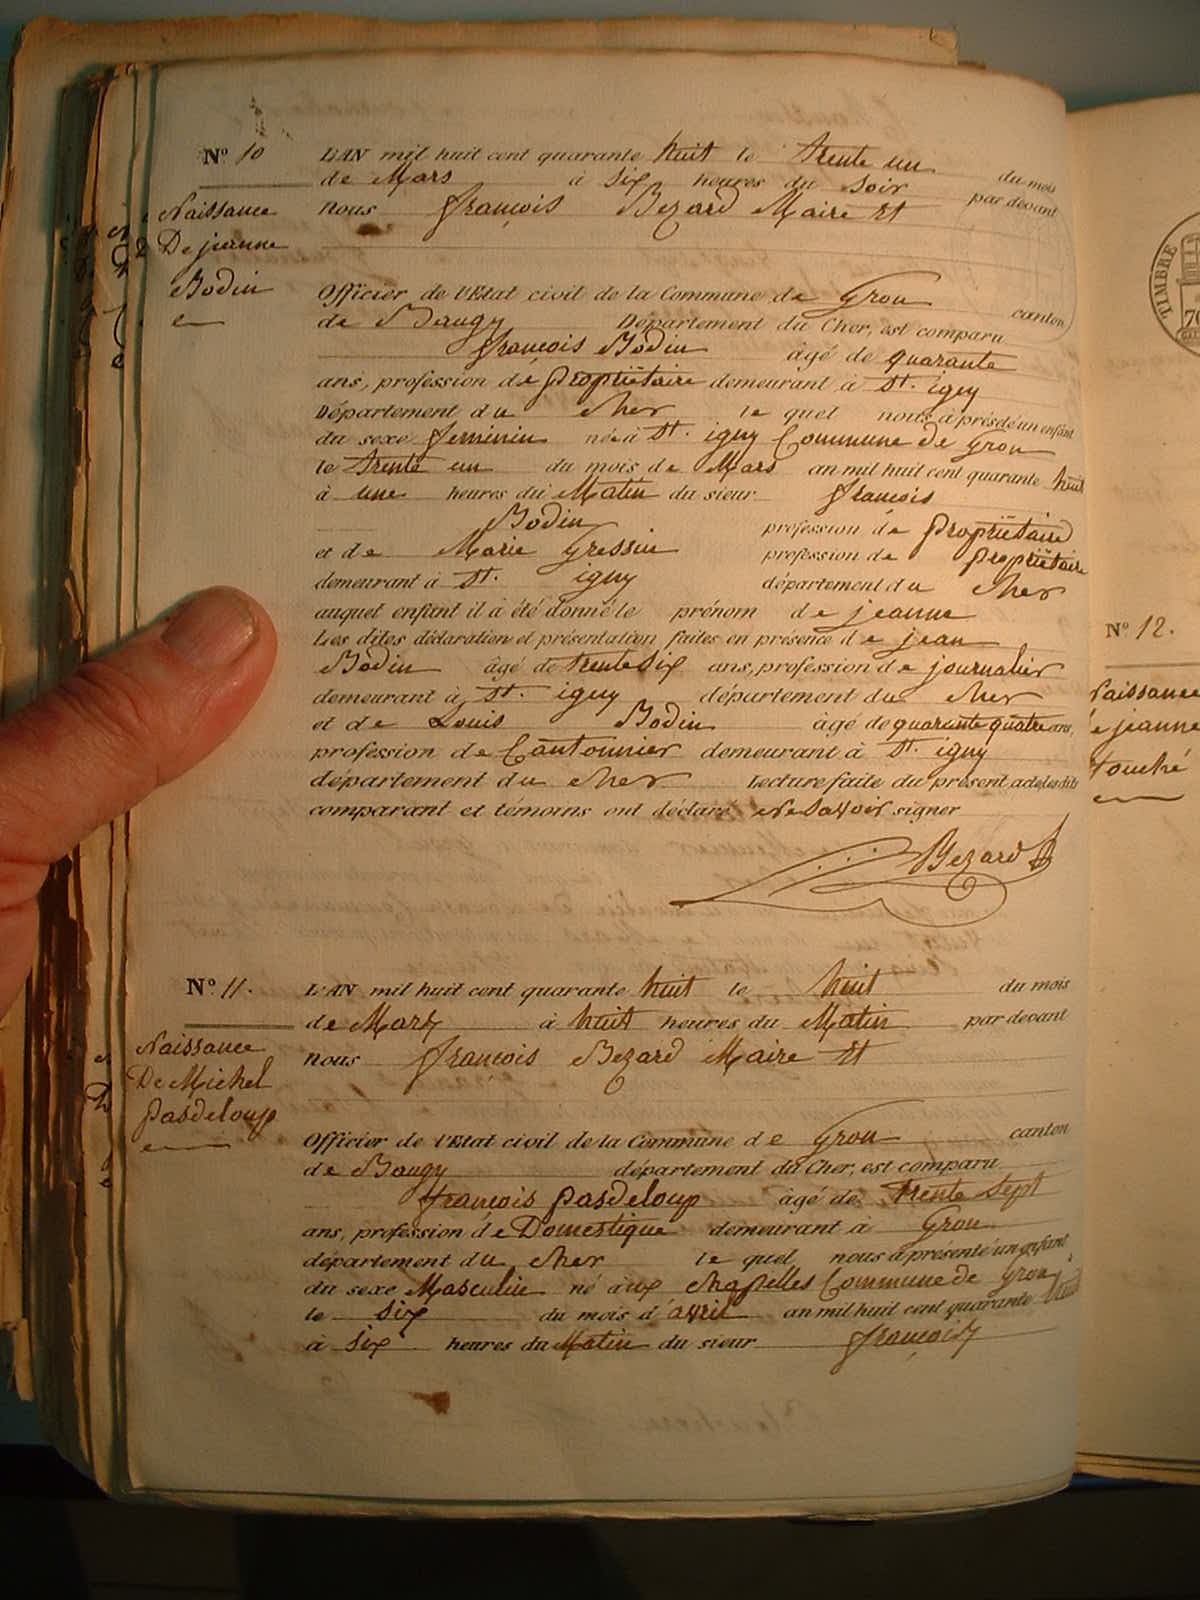 N.º 10
Naissance
De jeanne
Bodin
L'AN mil huit cent quarante huit le trente un du mois
de Mars à six heures du soir par devant
nous françois Bezard Maire Et
Officier de l'Etat civil de la Commune de Gron canton
de Baugy Département du Cher, est comparu
françois Bodin âgé de quarante
ans, profession de Propriétaire demeurant à St. igny
Département du Cher le quel nous a présté un enfant
du sexe feminin né à St. igny Commune de Gron
le trente un du mois de Mars an mil huit cent quarante huit
à une heures du Matin du sieur françois
Bodin profession de Propriétaire
et de Marie Gressin profession de Propriétaire
demeurant à St. igny département du Cher
auquel enfant il à été donné le prénom de jeanne
Les dites déclaration et présentation faites en présence de jean
Bodin âgé de trente six ans, profession de journalier
demeurant à St. igny département du Cher
et de Louis Bodin âgé de quarante quatre ans,
profession de Cantonnier demeurant à St. igny
département du Cher Lecture faite du présent acte, les dits
comparant et témoins ont déclaré ne savoir signer
Bezard
N.º 11.
Naissance
De Michel
Pasdeloup
L'AN mil huit cent quarante huit le huit du mois
de Mars à huit heures du Matin par devant
nous françois Bezard Maire Et
Officier de l'Etat civil de la Commune de Gron canton
de Baugy département du Cher, est comparu
françois Pasdeloup âgé de trente sept
ans, profession de Domestique demeurant à Gron
département du Cher le quel nous a présenté un enfant
du sexe Masculin né aux chapelles Commune de Gron
le six du mois d'avril an mil huit cent quarante huit
à six heures du Matin du sieur françois
TIMBRE
N.º 12.
Naissance
De jeanne
touché